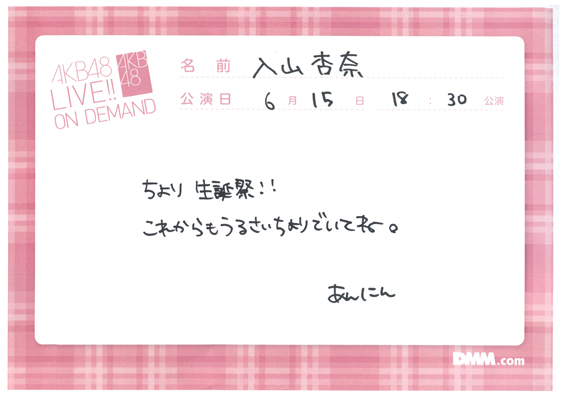 AKB48
LIVE!!
ON DEMAND
AKB
48
名前 入山杏奈
公演日 6月15日 18:30公演
ちより 生誕祭!!
これからもうるさいちよりでいてねー。
あんにん
DMM.com